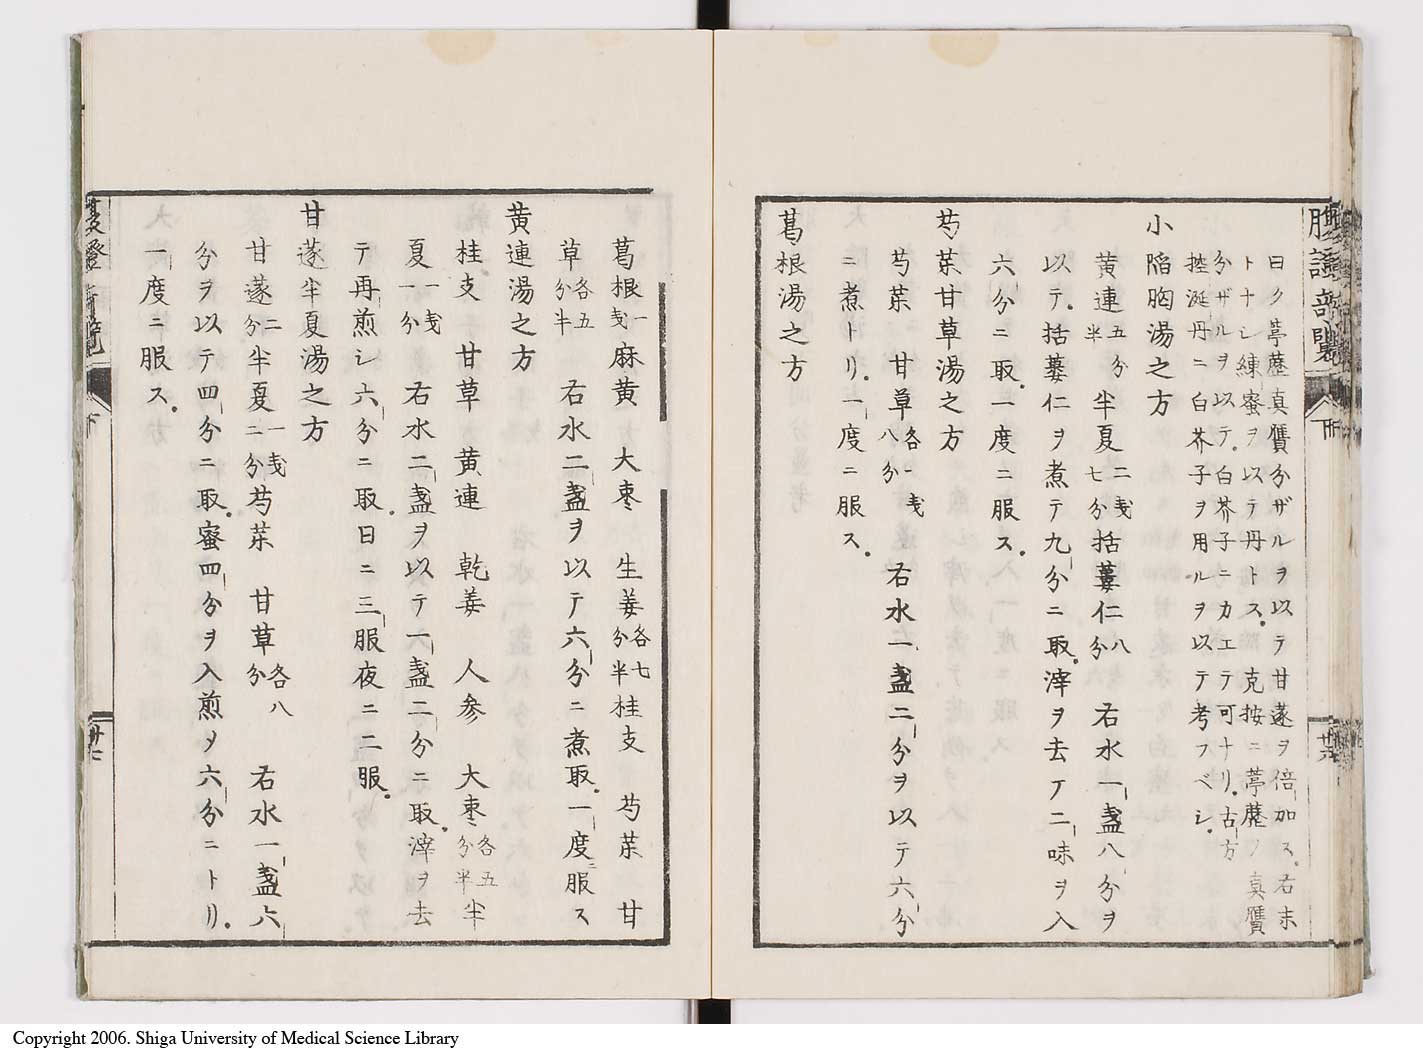 腹證奇覽
曰ク葶藶真贋分ザルヲ以テ甘遂ヲ倍加ス右末
トナシ練蜜ヲ以テ丹トス克按ニ葶藶ノ真贋
分ザルヲ以テ白芥子ニカエテ可ナリ古方
控涎丹ニ白芥子ヲ用ルヲ以テ考フベシ
小陷胸湯之方
黄連五分半 半夏二戔七分 括蔞仁八分 右水一盞八分ヲ
以テ括蔞仁ヲ煮テ九分ニ取滓ヲ去ノ二味ヲ入
六分ニ取一度ニ服ス
芍藥甘草湯之方
芍藥 甘草各一戔八分 右水一盞二分ヲ以テ六分
ニ煮トリ一度ニ服ス
葛根湯之方
廿六
葛根一戔 麻黄 大棗 生姜各七分半 桂支 芍藥 甘
草各五分半 右水二盞ヲ以テ六分ニ煮取一度ニ服ス
黄連湯之方
桂支 甘草 黄連 乾姜 人参 大棗各五分半 半
夏一戔一分 右水二盞ヲ以テ一盞二分ニ取滓ヲ去
テ再煎シ六分ニ取日ニ三服夜ニ二服
甘遂半夏湯之方
甘遂二分 半夏一戔二分 芍藥 甘草各八分 右水一盞六
分ヲ以テ四分ニ取蜜四分ヲ入煎ヲ六分ニトリ
一度ニ服ス
廿七
Copyright 2006. Shiga University of Medical Science Library